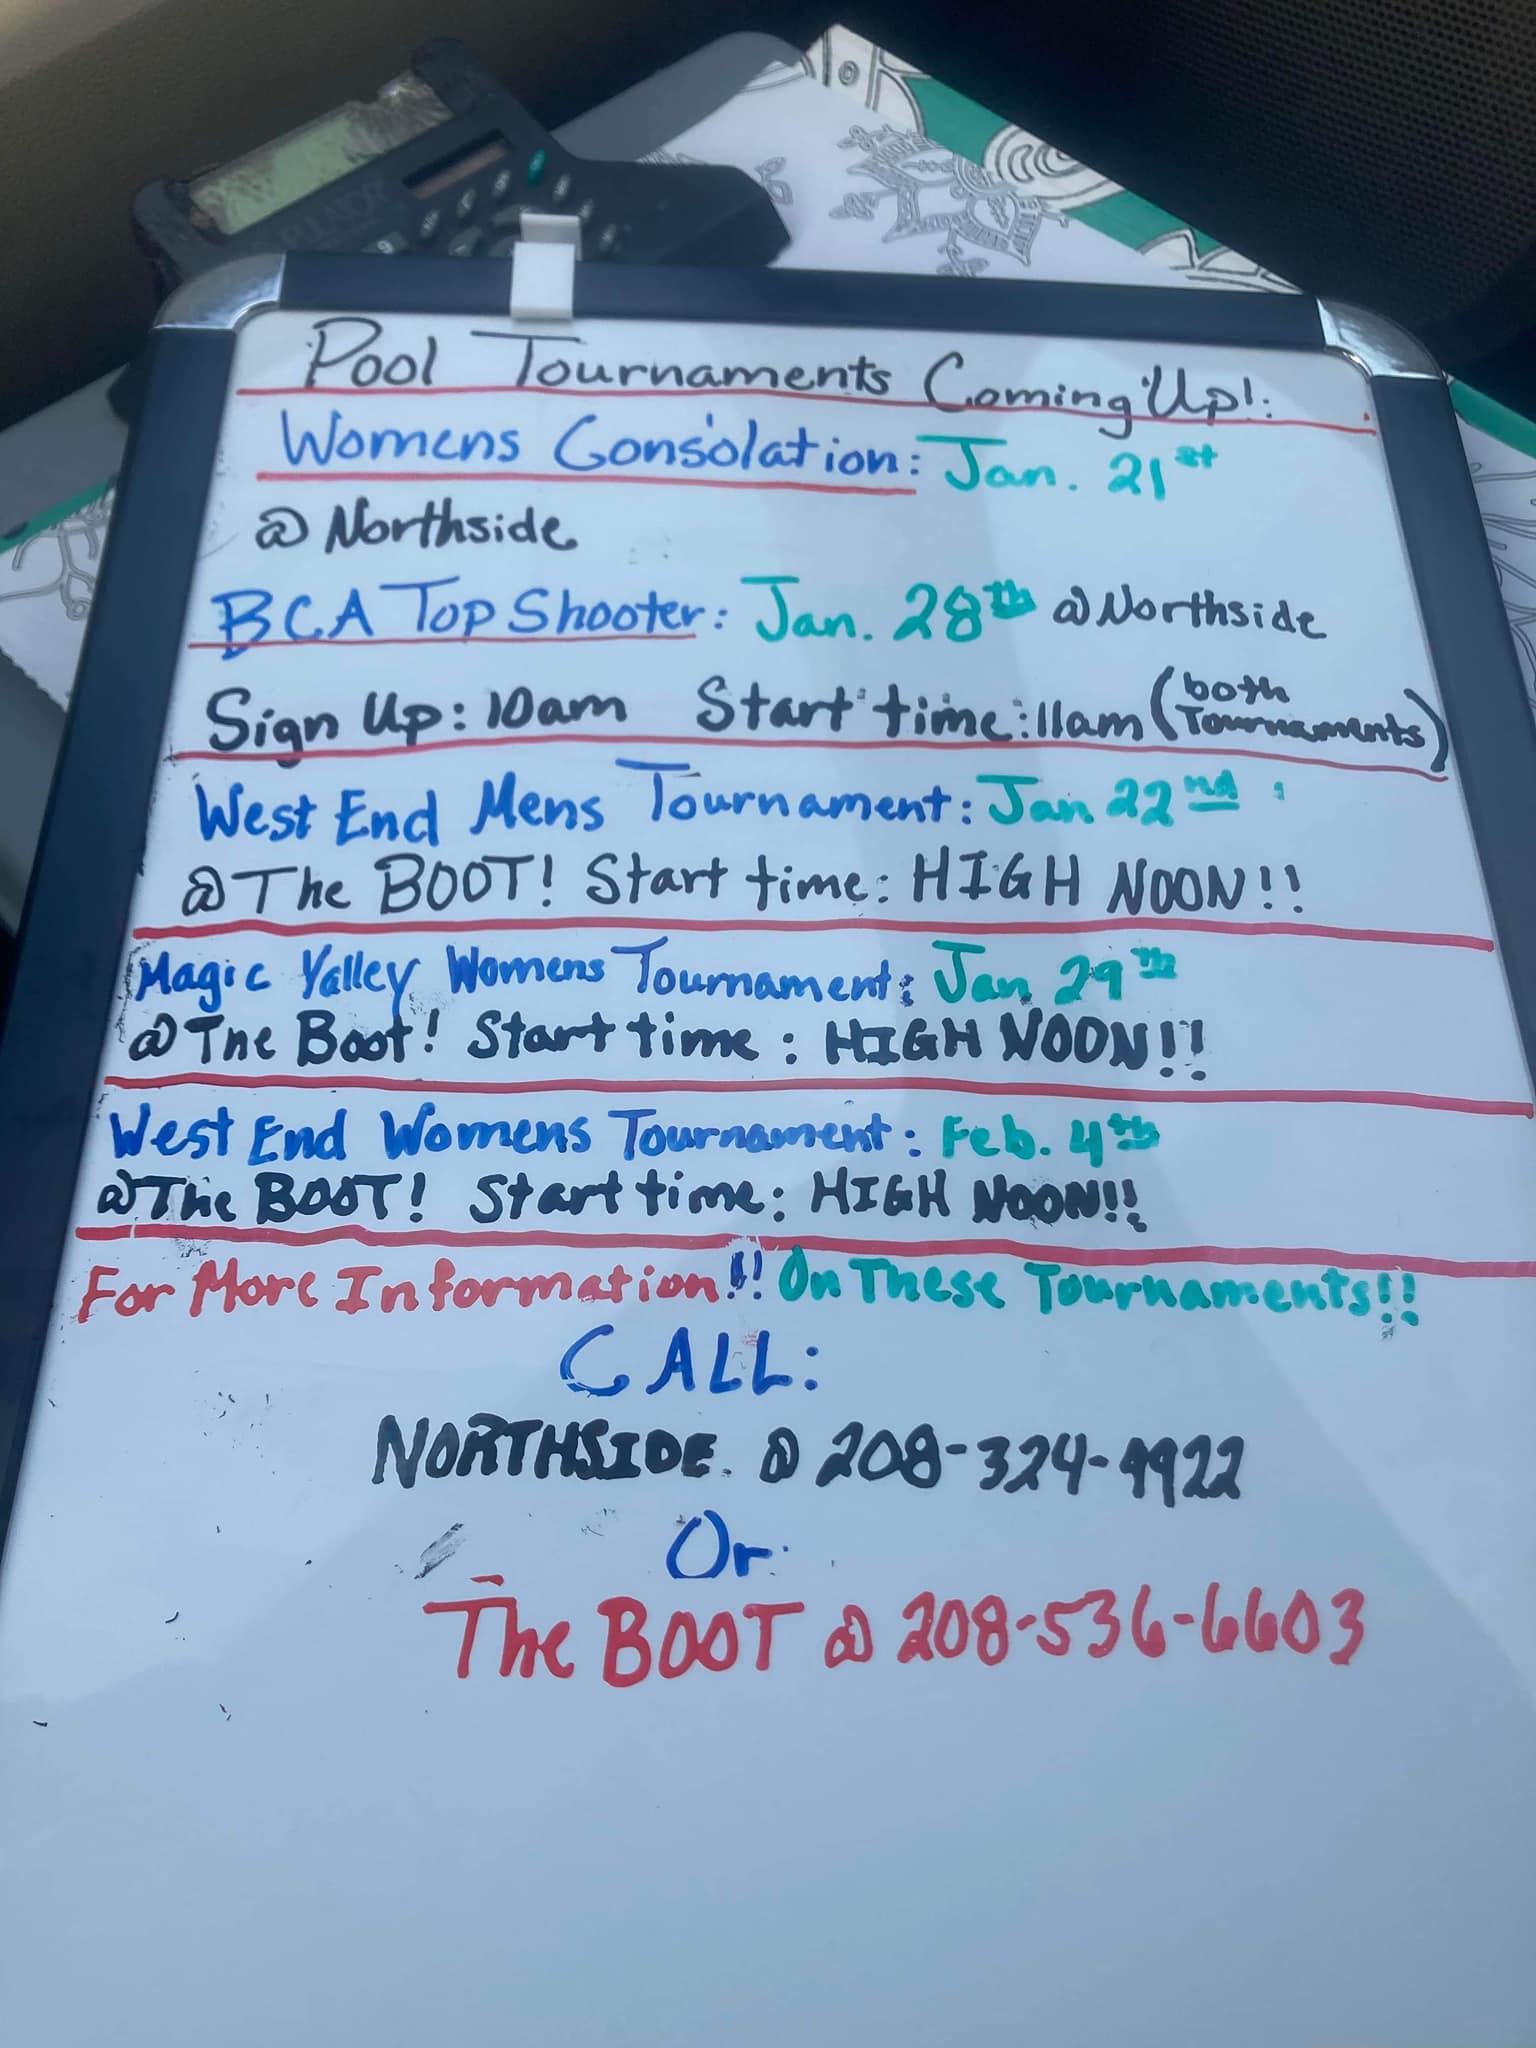 Pool Tournaments Coming Up!
Womens Consolation: Jan. 21st
@ Northside
BCA Top Shooter: Jan. 28th @ Northside
Sign Up: 10am Start time: 11am (both Tournaments)
West End Mens Tournament: Jan 22nd
@ The BOOT! Start time: HIGH NOON!!
Magic Valley Womens Tournament: Jan 29th
@ The Boot! Start time: HIGH NOON!!
West End Womens Tournament: Feb. 4th
@ The BOOT! Start time: HIGH NOON!!
For More Information!! On These Tournaments!!
CALL:
NORTHSIDE @ 208-324-9922
Or
The BOOT @ 208-536-6603